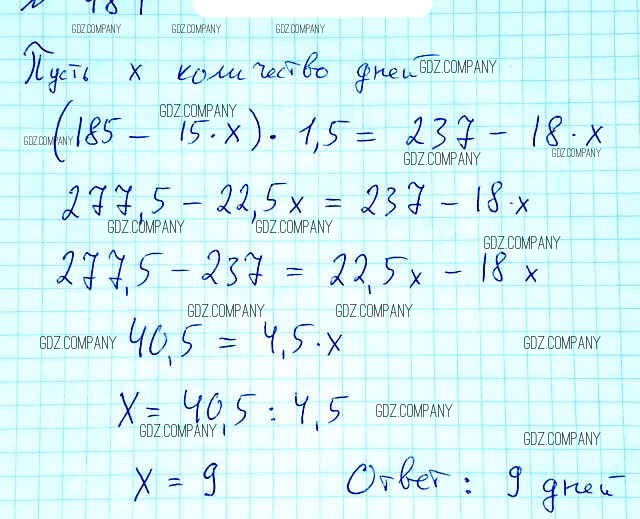 GDZ.COMPANY GDZ.COMPANY GDZ.COMPANY
Пусть x количество дней GDZ.COMPANY
GDZ.COMPANY
(185 - 15·x)·1,5 = 237 - 18·x
GDZ.COMPANY GDZ.COMPANY GDZ.COMPANY
277,5 - 22,5x = 237 - 18·x
GDZ.COMPANY GDZ.COMPANY
GDZ.COMPANY
277,5 - 237 = 22,5x - 18x
GDZ.COMPANY GDZ.COMPANY
GDZ.COMPANY 40,5 = 4,5·x GDZ.COMPANY
x = 40,5 : 4,5 GDZ.COMPANY
GDZ.COMPANY GDZ.COMPANY
x = 9 Ответ: 9 дней